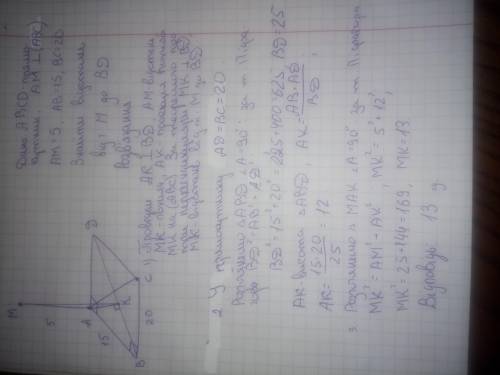 Дано ABCD прямо-
кутник AM ⊥ (ABC)
AM = 5 AB = 15, BC = 20
Знайти відстань
від т. M до BD
Розв'язання
1) Проведем AK ⊥ BD AM відстань
MK - похила AK проекція похилої
MK на (ABC) За теоремою про
три перпендикуляри MK ⊥ BD,
MK відстань від т. M до BD
M
5
A
D
15
K
B
C
20
2. У прямокутнику AD = BC = 20
Розглянемо △ABD ∠A = 90° за т. Піфа-
гора BD² = AB² + AD²
BD² = 15² + 20² = 225 + 400 = 625 BD = 25
AK висота △ABD, AK = AB · AD / BD,
AK = 15 · 20 / 25 = 12
3. Розглянемо △ MAK ∠A = 90° за т. Піфагора
MK² = AM² + AK², MK² = 5² + 12²,
MK² = 25 + 144 = 169, MK = 13
Відповідь 13